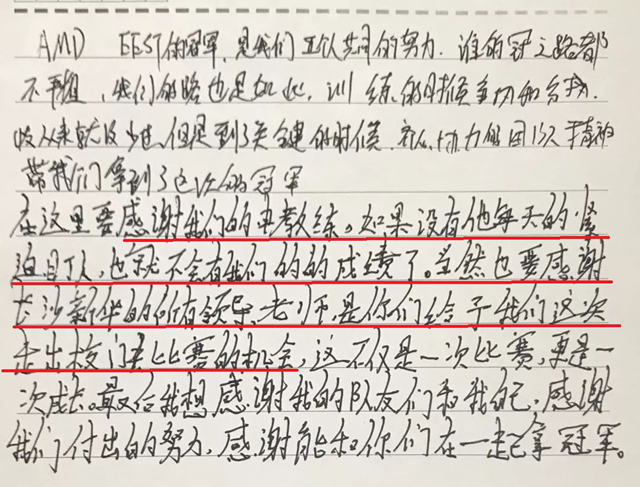 AMD EEST的冠军,是我们五队共同的努力.谁的冠之路都
不平坦,我们的路也是如此,训练的时候争切和分歧.
从来就没少过,但是到了关键的时候.齐心协力的团队精神
带我们拿到了这次的冠军
在这里要感谢我们的尹教练。如果没有他每天的
迫目丁人,也就不会有我们的的成绩了。当然也要感谢
长沙新华的所有领导、老师,是你们给予我们这次
走出校门去比赛的机会,这不仅是一次比赛,更是一
次成长。最后我想感谢我的队友们和我自己,感谢
我们付出的努力,感谢能和你们在一起拿冠军。